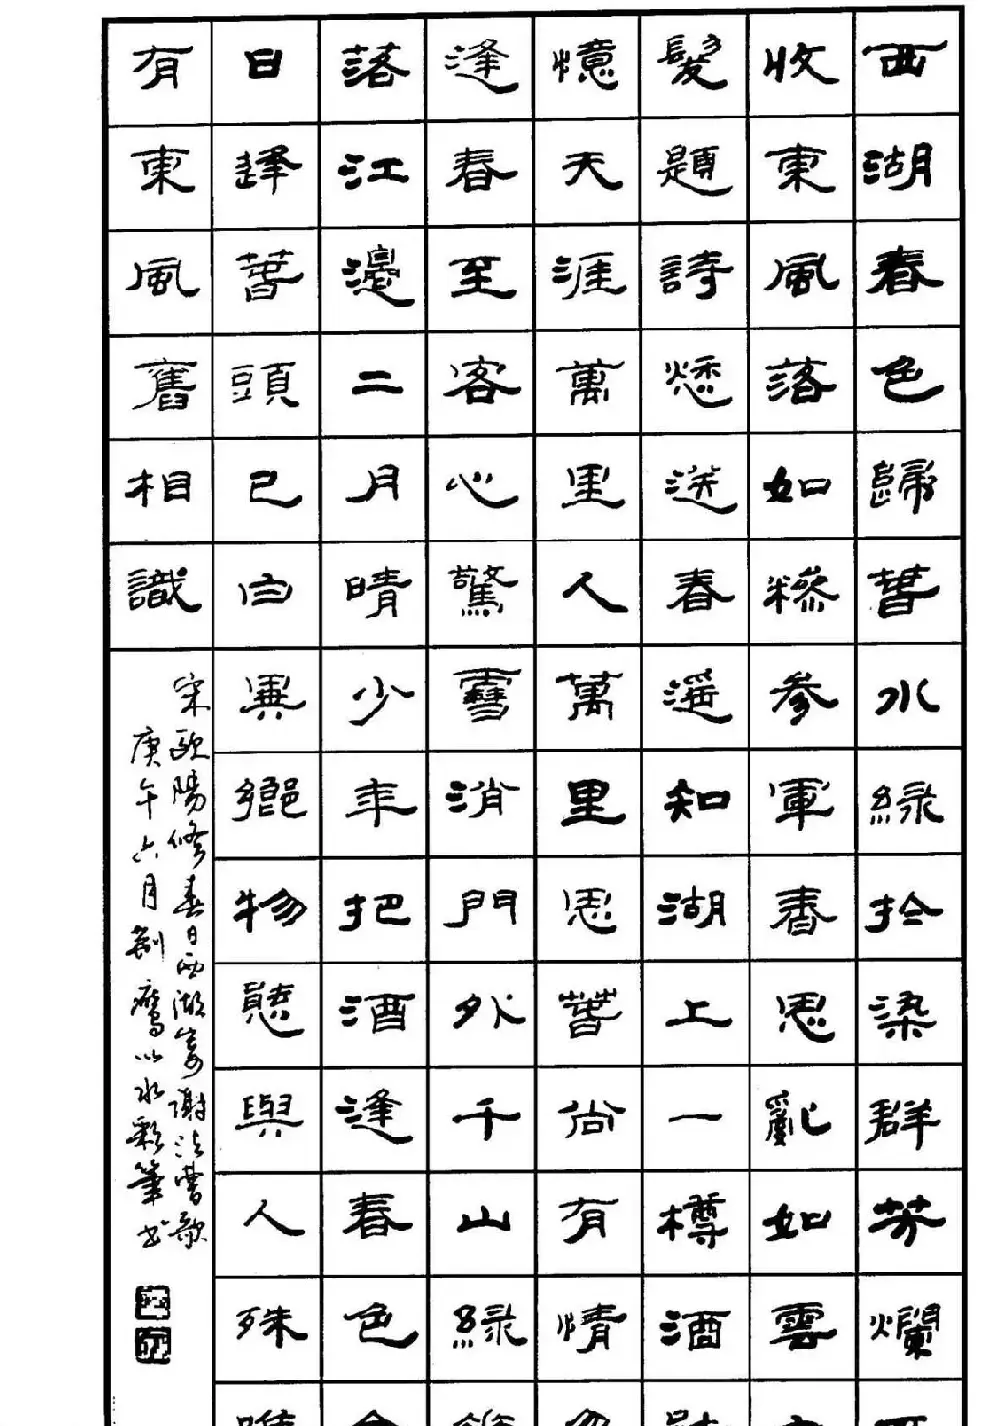 西湖春色歸春水綠於染群芳爛
收東風落如糝參軍春思亂如雲
髮題詩愁送春遙知湖上一樽酒
憶天涯萬里人萬里思春尚有情
逢春至客心驚雪消門外千山綠
落江邊二月晴少年把酒逢春色
日逢春頭已白異鄉物態與人殊
有東風舊相識
宋歐陽修春日西湖寄謝法曹歌
庚午六月鷹以水彩筆書